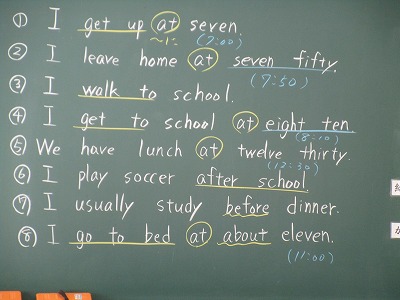 ① I get up at seven.
～に (7:00)
② I leave home at seven fifty.
(7:50)
③ I walk to school.
④ I get to school at eight ten.
(8:10)
⑤ We have lunch at twelve thirty.
(12:30)
⑥ I play soccer after school.
⑦ I usually study before dinner.
⑧ I go to bed at about eleven.
(11:00)